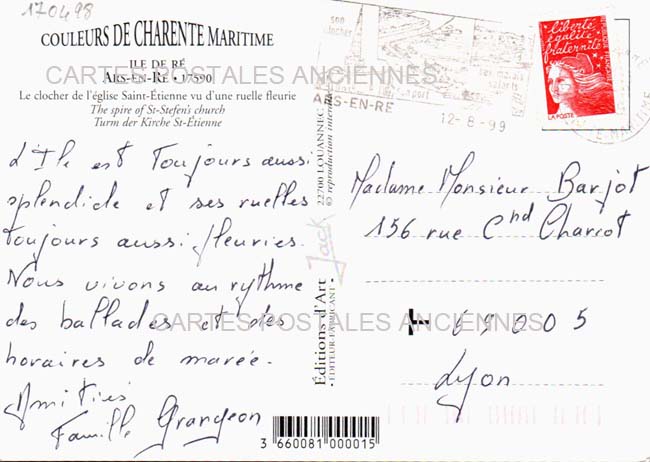 170498
COULEURS DE CHARENTE MARITIME
ILE DE RÉ
ARS-EN-RÉ • 17590
Le clocher de l'église Saint-Étienne vu d'une ruelle fleurie
The spire of St-Stefen's church
Turm der Kirche St-Étienne
CARTES POSTALES ANCIENNES
L'Ile est toujours aussi
splendide et ses ruelles
toujours aussi fleuries.
Nous vivons au rythme
des ballades et des
horaires de marée.
Amitiés
Famille Grangeon
22700 LOUANNEC
© reproduction interdite
Jack
Éditions d'Art
• ÉDITEUR-FABRICANT •
3 660081 000015
son
clocher
port
ARS-EN-RE
12-8-99
liberté
égalité
fraternité
RÉPUBLIQUE FRANÇAISE
LA POSTE
TE-MARITIME
Madame Monsieur Barjot
156 rue Cnd Charcot
69005
Lyon
CARTES POSTALES ANCIENNES